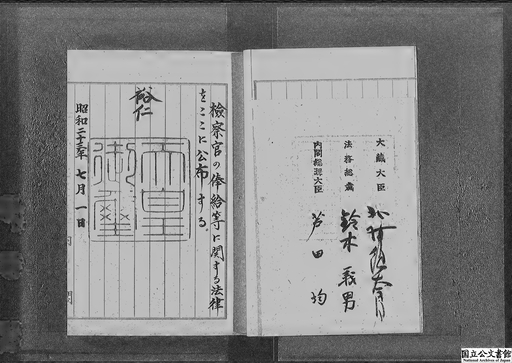 大藏大臣 北村徳太郎
法務総裁 鈴木義男
内閣総理大臣 芦田均
檢察官の俸給等に関する法律
をここに公布する
裕仁
天皇
御璽
昭和二十三年七月一日
内閣
国立公文書館
National Archives of Japan